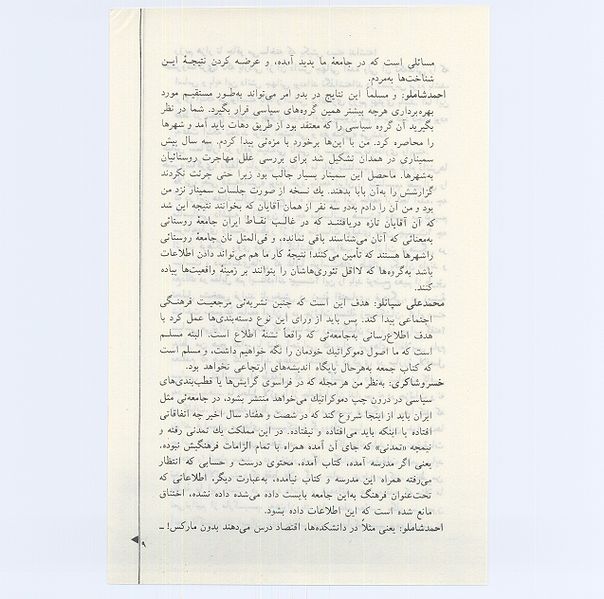 مسائلی است که در جامعهٔ ما پدید آمده، و عرضه کردن نتیجهٔ ایــن
شناخت‌ها به‌مردم.
احمدشاملو: و مسلماً این نتایج در بدر امر می‌تواند به‌طور مستقیـم مورد
بهره‌برداری هرچه بیشتر همین گروه‌های سیاسی قرار بگیرد. شما در نظر
بگیرید آن گروه سیاسی را که معتقد بود از طریق دهات باید آمد و شهرها
را محاصره کرد. من با این‌ها برخورد با مزه‌ئی پیدا کردم. سه سال پیش
سمیناری در همدان تشکیل شد برای بررسی علل مهاجرت روستائیان
به‌شهرها. ماحصل این سمینار بسیار جالب بود زیرا حتی جرئت نکردند
گزارشش را به‌آن بابا بدهند. یك نسخه از صورت جلسات سمینار نزد من
بود و من آن را دادم به‌دو سه نفر از همان آقایان که بخوانند نتیجه این شد
که آن آقایان تازه دریافتنـد که در غالـب نقـاط ایران جامعهٔ روستائی
به‌معنائی که آنان می‌شناسند باقی نمانده، و فی‌المثل نان جامعهٔ روستائی
راشهرها هستند که تأمین می‌کنند! نتیجهٔ کار ما هم می‌تواند دادن اطلاعات
باشد به‌گروه‌ها که لااقل تئوری‌هاشان را بتوانند بر زمینهٔ واقعیت‌ها پیاده
کنند.
محمدعلی سپانلو: هدف این است که چنین نشریه‌ئی مرجعیـت فرهنگـی
اجتماعی پیدا کند. پس باید از ورای این نوع دسته‌بندی‌ها عمل کرد با
هدف اطلاع‌رسانی به‌جامعه‌ئی که واقعاً تشنهٔ اطلاع است. البته مسلـم
است که ما اصول دموکراتیك خودمان را نگه خواهیم داشت، و مسلم است
که کتاب جمعه به‌هرحال پایگاه اندیشه‌های ارتجاعی نخواهد بود.
خسروشاکری: به‌نظر من هر مجله که در فراسوی گرایش‌ها یا قطب‌بندی‌های
سیاسی در درون چپ دموکراتیك می‌خواهد منتشر بشود، در جامعه‌ئی مثل
ایران باید از اینجا شروع کند که در شصت و هفتاد سال اخیر چه اتفاقاتی
افتاده یا اینکه باید می‌افتاده و نیفتاده. در این مملکت یك تمدنی رفته و
نیمچه «تمدنی» که جای آن آمده همراه با تمام الزامات فرهنگیش نبوده.
یعنی اگر مدرسه آمده، کتاب آمده، محتوی درست و حسابی که انتظار
می‌رفته همراه این مدرسه و کتاب نیامده، به‌عبارت دیگر، اطلاعاتی که
تحت‌عنوان فرهنگ به‌این جامعه بایست داده می‌شده داده نشده، اختناق
مانع شده است که این اطلاعات داده بشود.
احمدشاملو: یعنی مثلاً در دانشکده‌ها، اقتصاد درس می‌دهند بدون مارکس! ــ
۹